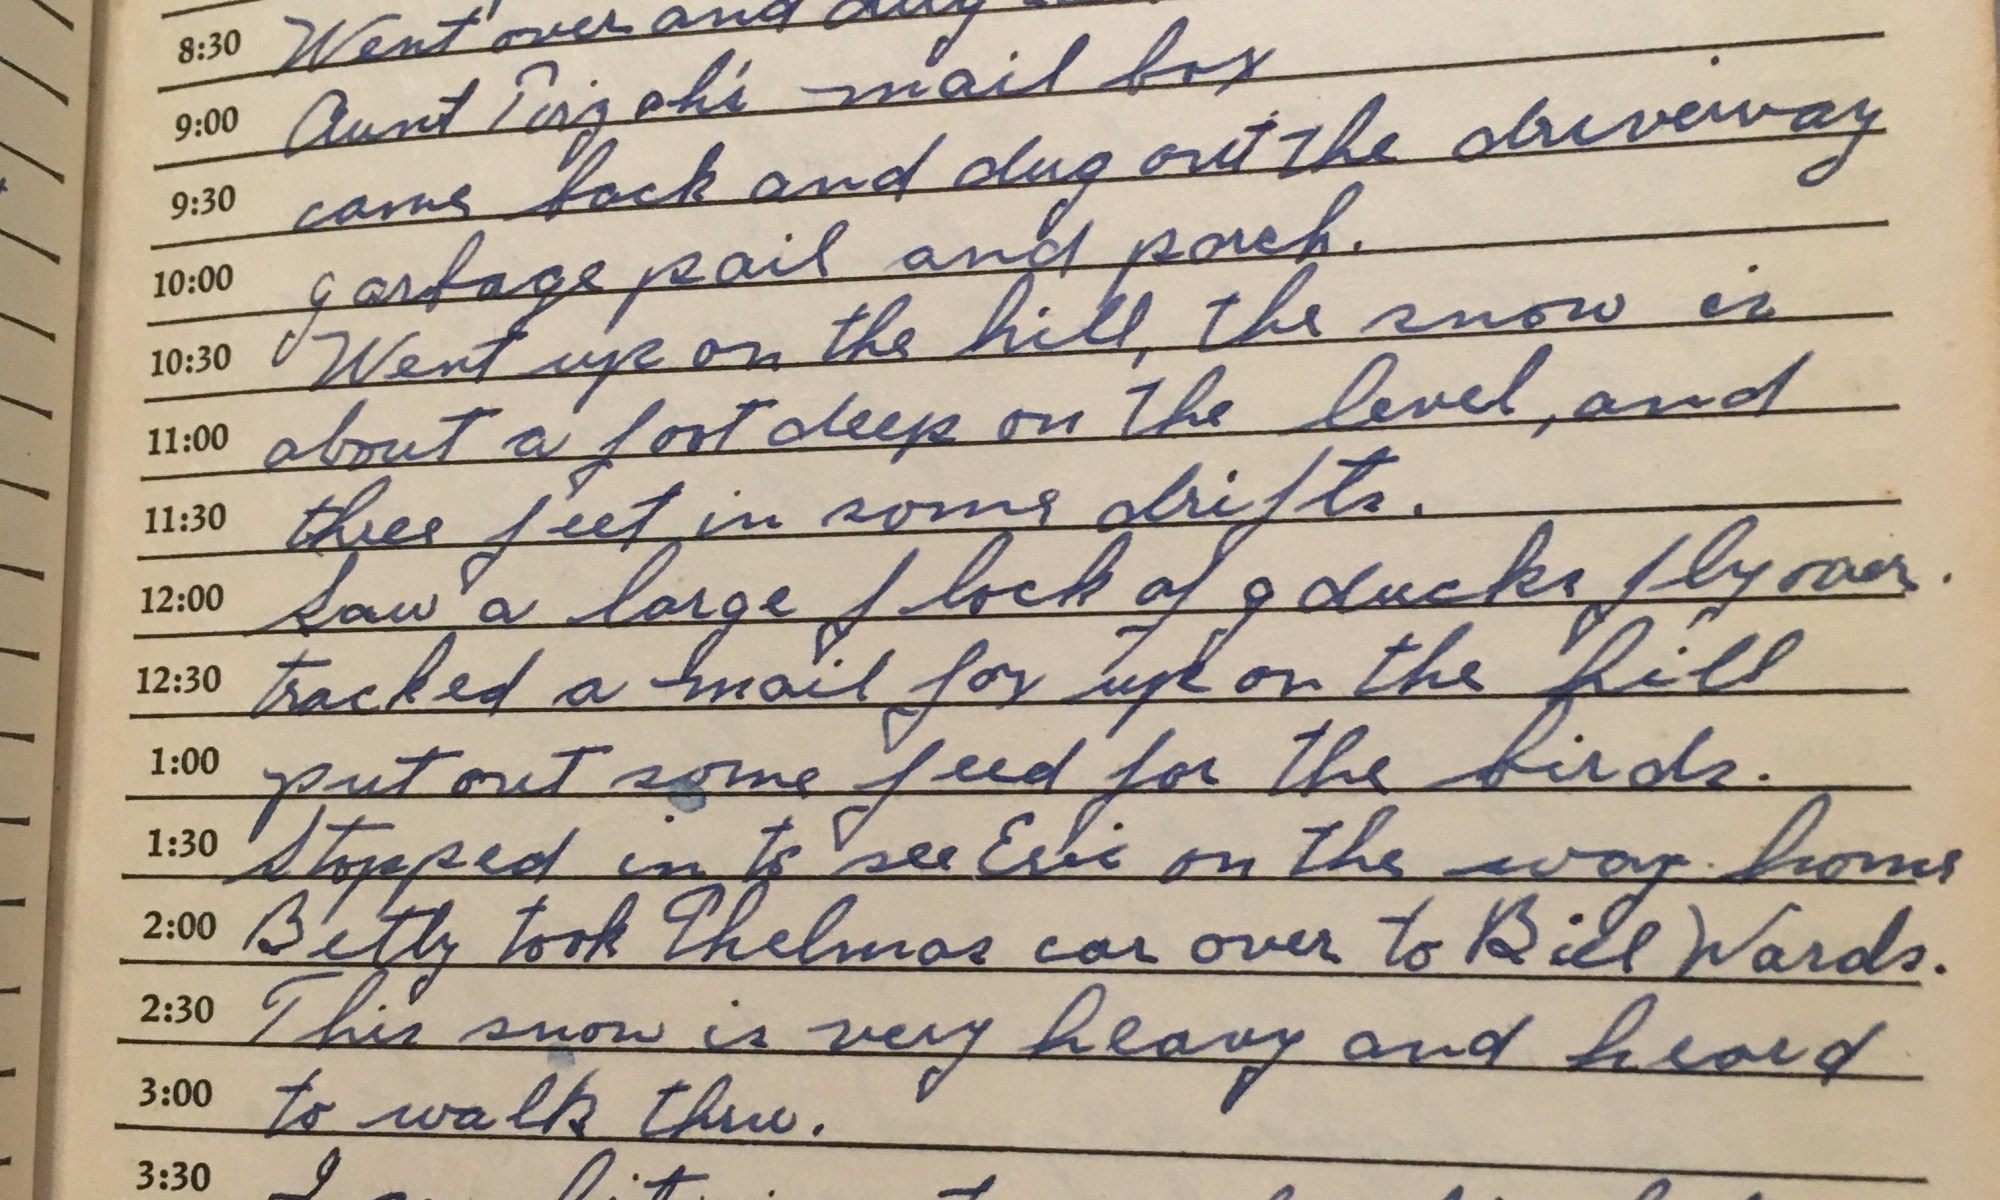 8:30 Went over and dug
9:00 Aunt Tirzah's mail box
9:30 came back and dug out the driveway
10:00 garbage pail and porch.
10:30 Went up on the hill, the snow is
11:00 about a foot deep on the level, and
11:30 three feet in some drifts.
12:00 Saw a large flock of g ducks fly over.
12:30 tracked a mail fox up on the hill
1:00 put out some feed for the birds.
1:30 Stopped in to see Evie on the way home
2:00 Betty took Thelmas car over to Bill Wards.
2:30 This snow is very heavy and heard
3:00 to walk thru.
3:30 I